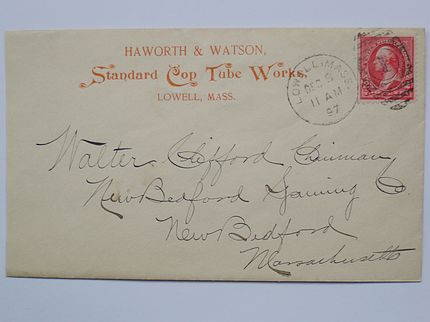 HAWORTH & WATSON,
Standard Cop Tube Works,
LOWELL, MASS.
LOWELL, MASS.
DEC 9
11 AM
97
Walter Clifford Chairman
New Bedford Spinning Co
New Bedford
Massachusetts